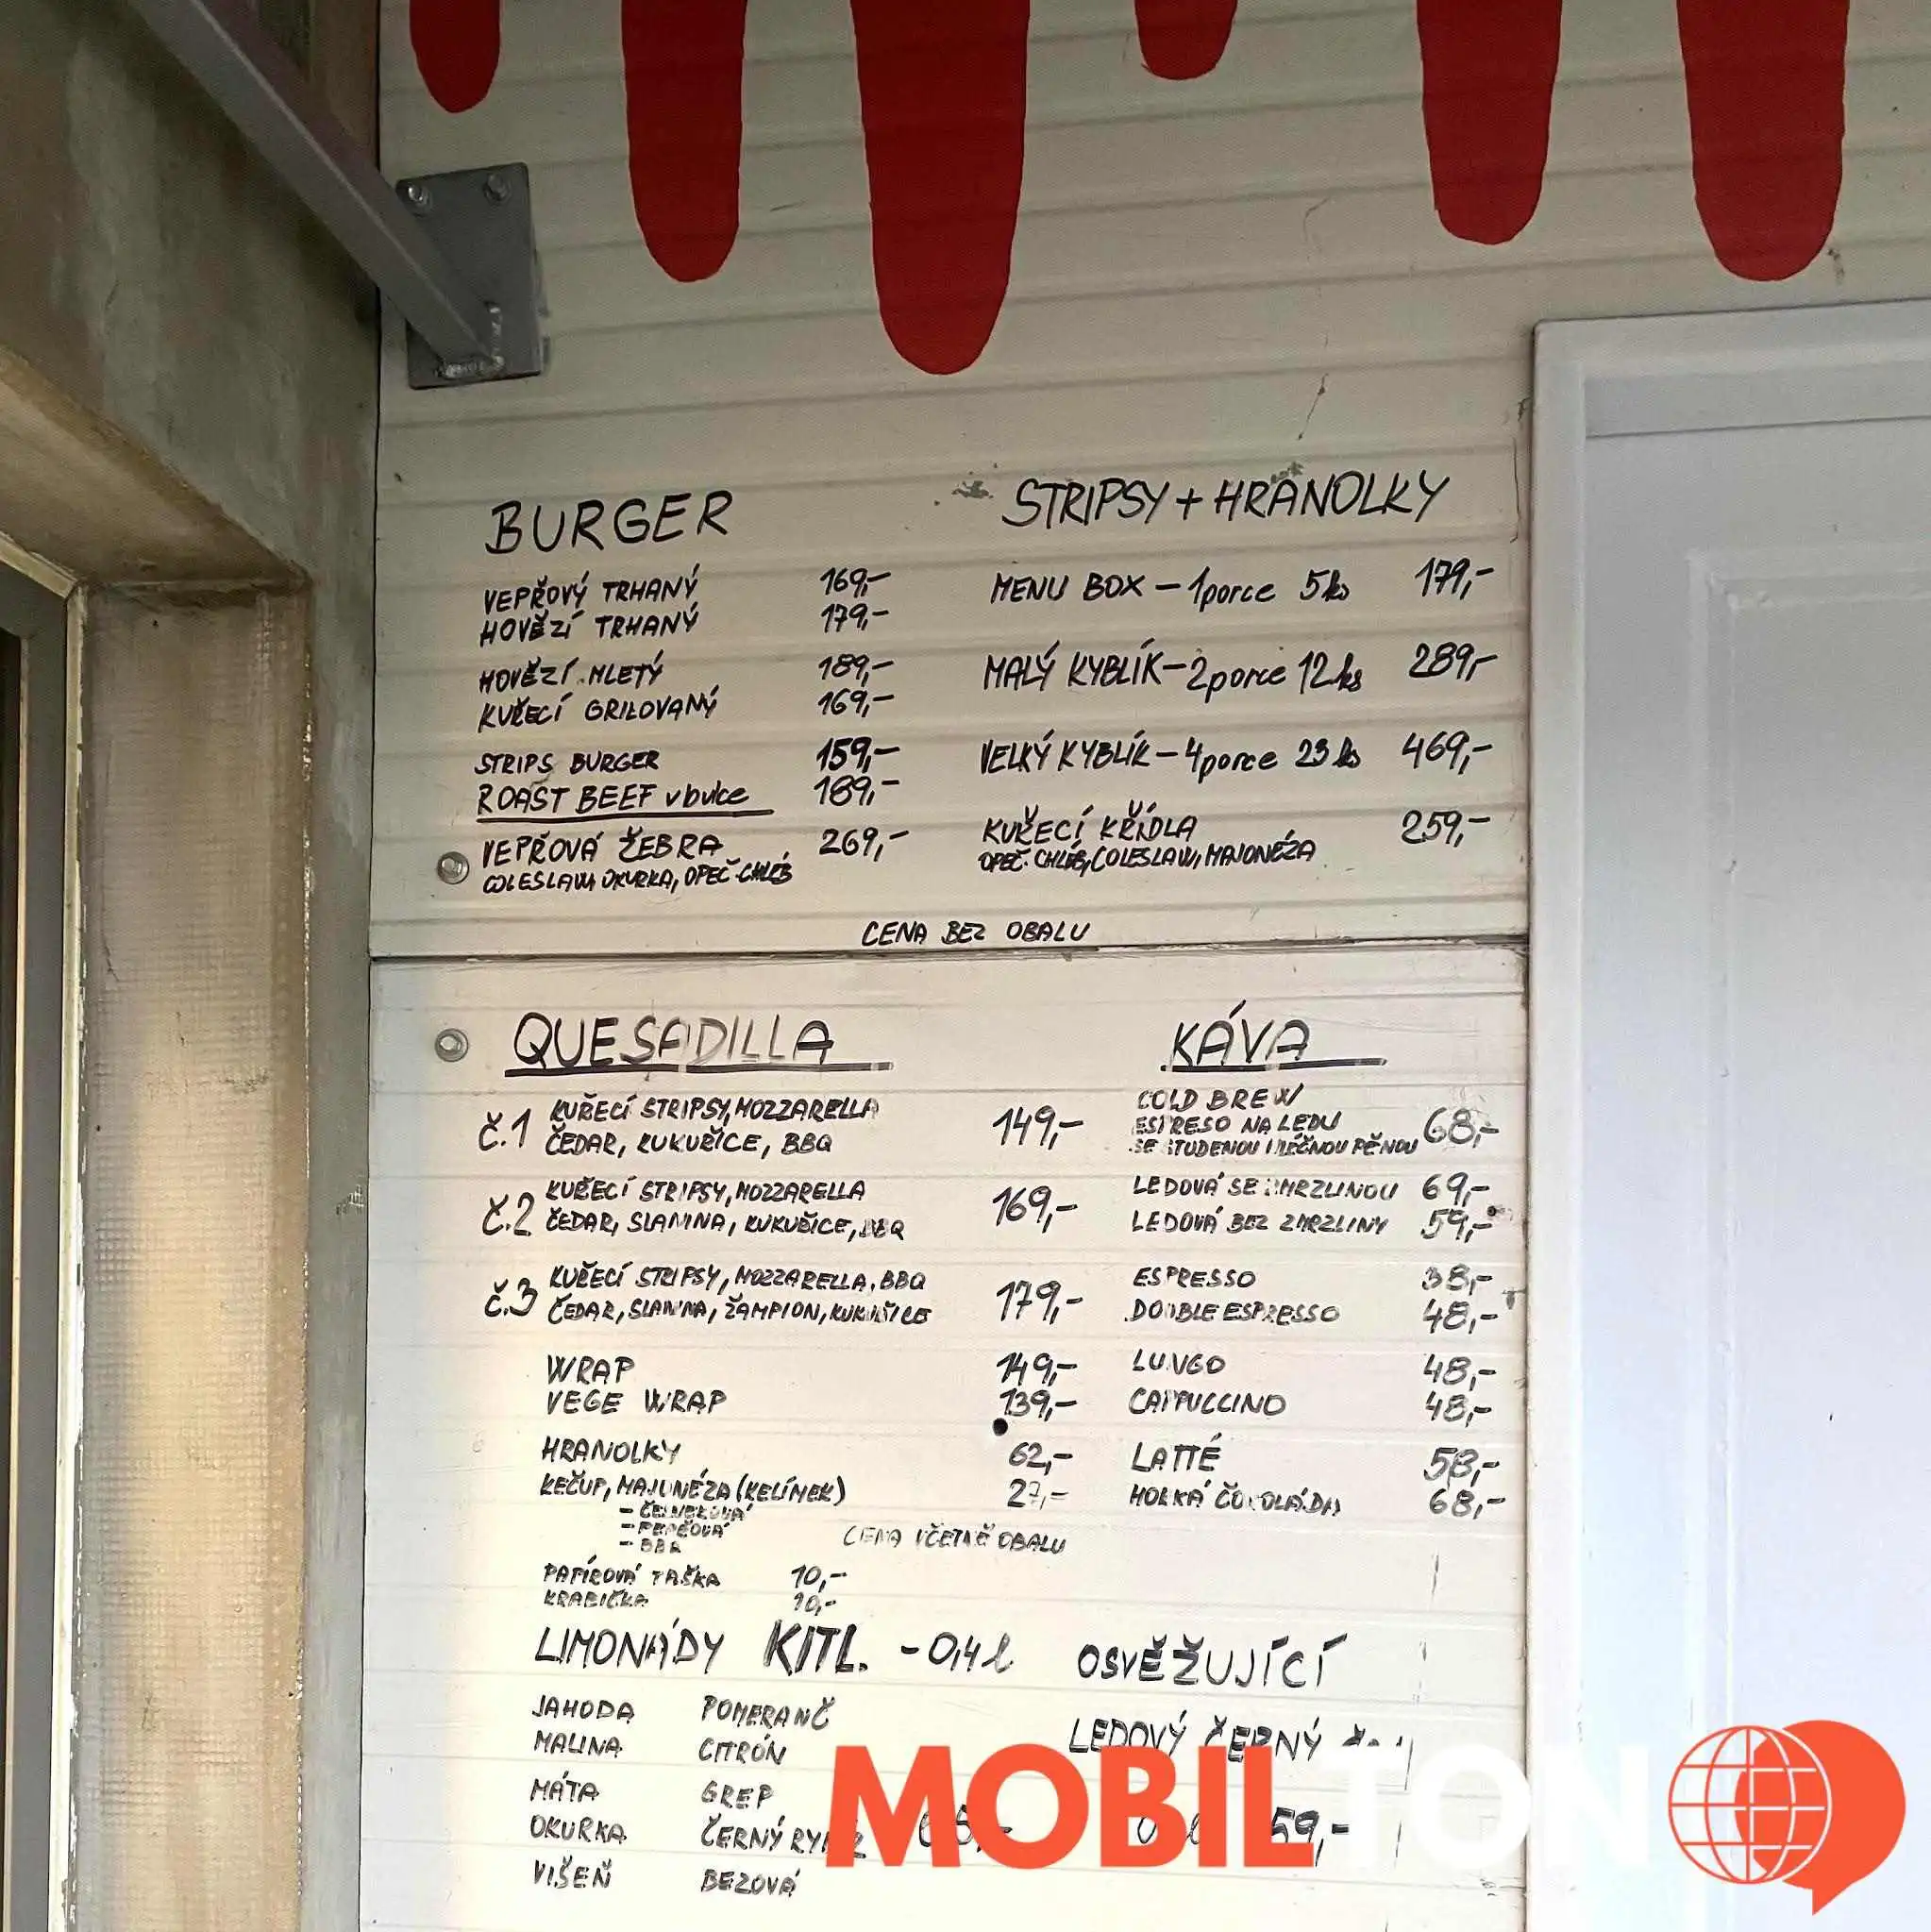 BURGER
VEPŘOVÝ TRHANÝ 169,-
HOVĚZÍ TRHANÝ 179,-
HOVĚZÍ MLETÝ 189,-
KUŘECÍ GRILOVANÝ 169,-
STRIPS BURGER 159,-
ROAST BEEF v bulce 189,-
VEPŘOVÁ ŽEBRA 269,-
COLESLAW, OKURKA, OPEČ. CHLÉB
STRIPSY + HRANOLKY
MENU BOX - 1 porce 5 ks 179,-
MALÝ KYBLÍK - 2 porce 12 ks 289,-
VELKÝ KYBLÍK - 4 porce 23 ks 469,-
KUŘECÍ KŘÍDLA 259,-
OPEČ. CHLÉB, COLESLAW, MAJONÉZA
CENA BEZ OBALU
QUESADILLA
Č.1 KUŘECÍ STRIPSY, MOZZARELLA
ČEDAR, KUKUŘICE, BBQ 149,-
Č.2 KUŘECÍ STRIPSY, MOZZARELLA
ČEDAR, SLANINA, KUKUŘICE, BBQ 169,-
Č.3 KUŘECÍ STRIPSY, MOZZARELLA, BBQ
ČEDAR, SLANINA, ŽAMPION, KUKUŘICE 179,-
WRAP 149,-
VEGE WRAP 139,-
HRANOLKY 62,-
KEČUP, MAJONÉZA (KELÍMEK) 27,-
- ČESNEKOVÁ
- FEFEŠOVÁ
- BBQ
CENA VČETNĚ OBALU
PAPÍROVÁ TAŠKA 10,-
KRABIČKA 10,-
KÁVA
COLD BREW
ESPRESO NA LEDU
SE STUDENOU MLÉČNOU PĚNOU 68,-
LEDOVÁ SE ZMRZLINOU 69,-
LEDOVÁ BEZ ZMRZLINY 59,-
ESPRESSO 38,-
DOUBLE ESPRESSO 48,-
LUNGO 48,-
CAPPUCCINO 48,-
LATTÉ 58,-
HORKÁ ČOKOLÁDA 68,-
LIMONÁDY KITL. - 0,4 l
JAHODA POMERANČ
MALINA CITRÓN
MÁTA GREP
OKURKA ČERNÝ RYBÍZ
VIŠEŇ BEZOVÁ
OSVĚŽUJÍCÍ
LEDOVÝ ČERNÝ
59,-
MOBILTON